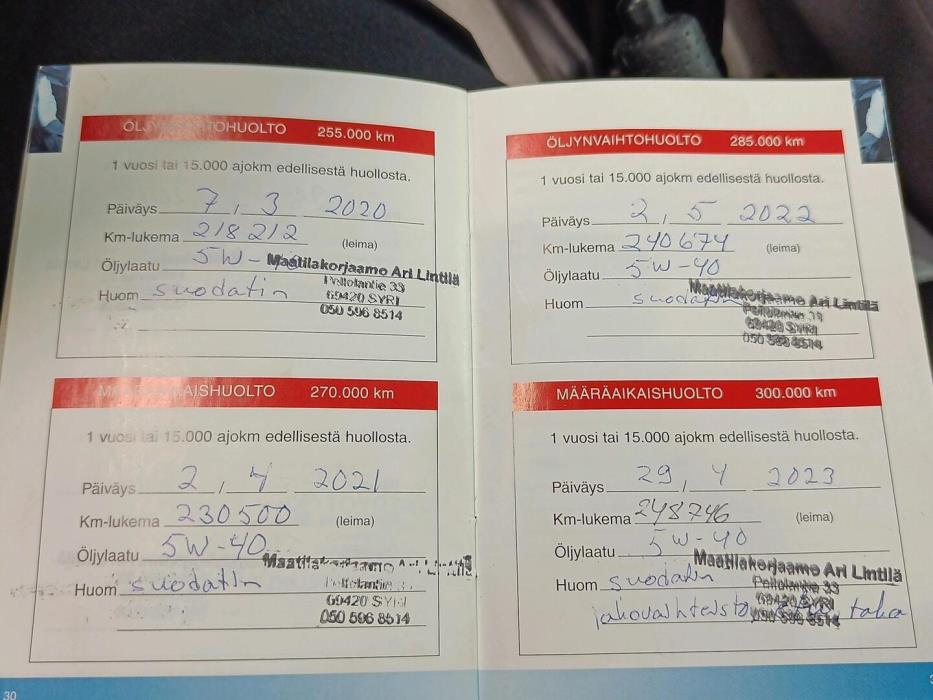 ÖLJYNVAIHTOHUOLTO 255.000 km
1 vuosi tai 15.000 ajokm edellisestä huollosta.
Päiväys 7 / 3 2020
Km-lukema 218212 (leima)
Öljylaatu 5W-40
Maatilakorjaamo Ari Lintilä
Huom suodatin
Peltolantie 33
69420 SYRI
050 596 8514
MÄÄRÄAIKAISHUOLTO 270.000 km
1 vuosi tai 15.000 ajokm edellisestä huollosta.
Päiväys 2 / 4 2021
Km-lukema 230500 (leima)
Öljylaatu 5W-40
Maatilakorjaamo Ari Lintilä
Huom suodatin
Peltolantie 33
69420 SYRI
050 596 8514
30
ÖLJYNVAIHTOHUOLTO 285.000 km
1 vuosi tai 15.000 ajokm edellisestä huollosta.
Päiväys 2 / 5 2022
Km-lukema 240674 (leima)
Öljylaatu 5W-40
Maatilakorjaamo Ari Lintilä
Huom suodatin
Peltolantie 33
69420 SYRI
050 596 8514
MÄÄRÄAIKAISHUOLTO 300.000 km
1 vuosi tai 15.000 ajokm edellisestä huollosta.
Päiväys 29 / 4 2023
Km-lukema 248746 (leima)
Öljylaatu 5W-40
Maatilakorjaamo Ari Lintilä
Huom suodatin
Peltolantie 33
69420 SYRI
050 596 8514
jakovaihteisto taka